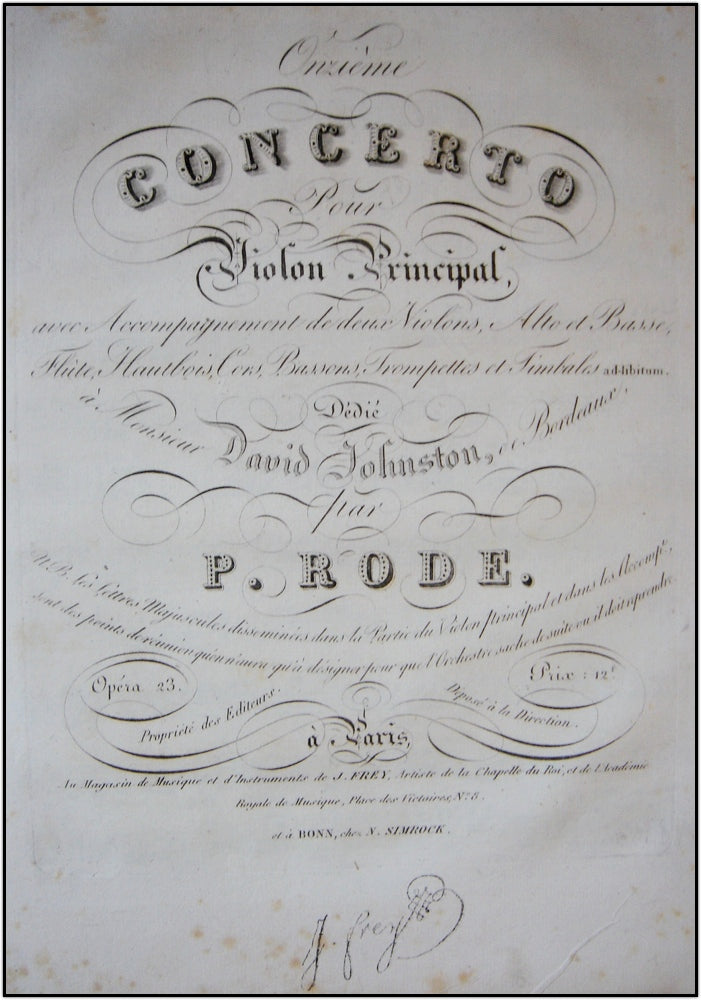 Onzième
CONCERTO
Pour
Violon Principal,
avec Accompagnement de deux Violons, Alto et Basse,
Flûte, Hautbois, Cors, Bassons, Trompettes et Timbales ad-libitum.
Dédié
à Monsieur David Johnston, de Bordeaux.
par
P. RODE.
N.B. les lettres Majuscules disseminées dans la Partie du Violon principal et dans les Accomp.ts,
sont des points de réunion qu'on n'aura qu'à désigner pour que l'Orchestre sache de suite ou il doit reprendre.
Opéra 23.
Prix : 12.f
Propriété des Editeurs.
Déposé à la Direction.
à Paris,
Au Magasin de Musique et d'Instruments de J. FREY, Artiste de la Chapelle du Roi, et de l'Académie
Royale de Musique, Place des Victoires, N.o 8.
et à BONN, chez N. SIMROCK.
J. Frey